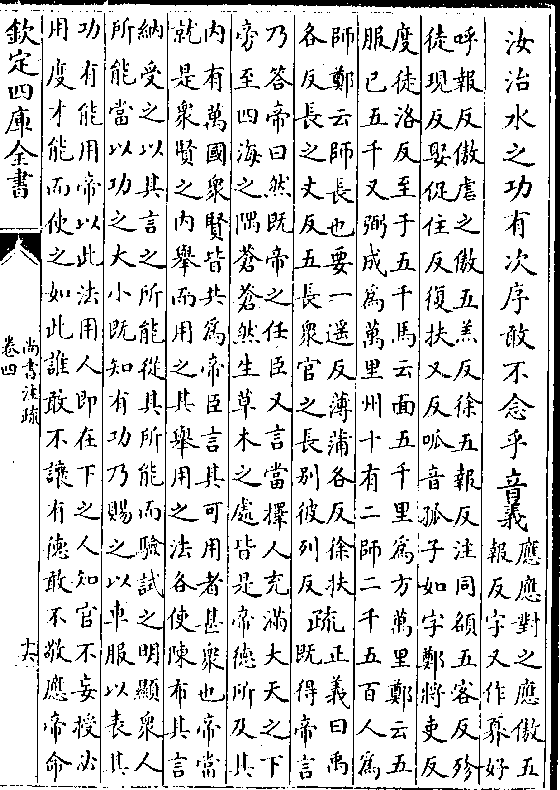 汝治水之功有次序敢不念乎音義應應對之應傲五
報反字又作奡好
呼報反傲虐之傲五羔反徐五報反注同頟五客反殄
徒現反娶促住反復扶又反呱音孤子如字鄭將吏反
度徒洛反至于五千馬云面五千里為方萬里鄭云五
服已五千又弼成為萬里州十有二師二千五百人為
師鄭云師長也要一遥反薄蒲各反徐扶
各反長之丈反五長衆官之長别彼列反
疏正義曰禹
既得帝言
乃答帝曰然既帝之任臣又言當擇人充滿大天之下
旁至四海之隅蒼蒼然生草木之處皆是帝德所及其
内有萬國衆賢皆共為帝臣言其可用者甚衆也帝當
就是衆賢之内舉而用之其舉用之法各使陳布其言
納受之以其言之所能從其所能而驗試之明顯衆人
所能當以功之大小既知有功乃賜之以車服以表其
功有能用帝以此法用人即在下之人知官不妄授必
用度才能而使之如此誰敢不讓有德敢不敬應帝命
欽定四庫全書
尚書注疏
卷四
十六